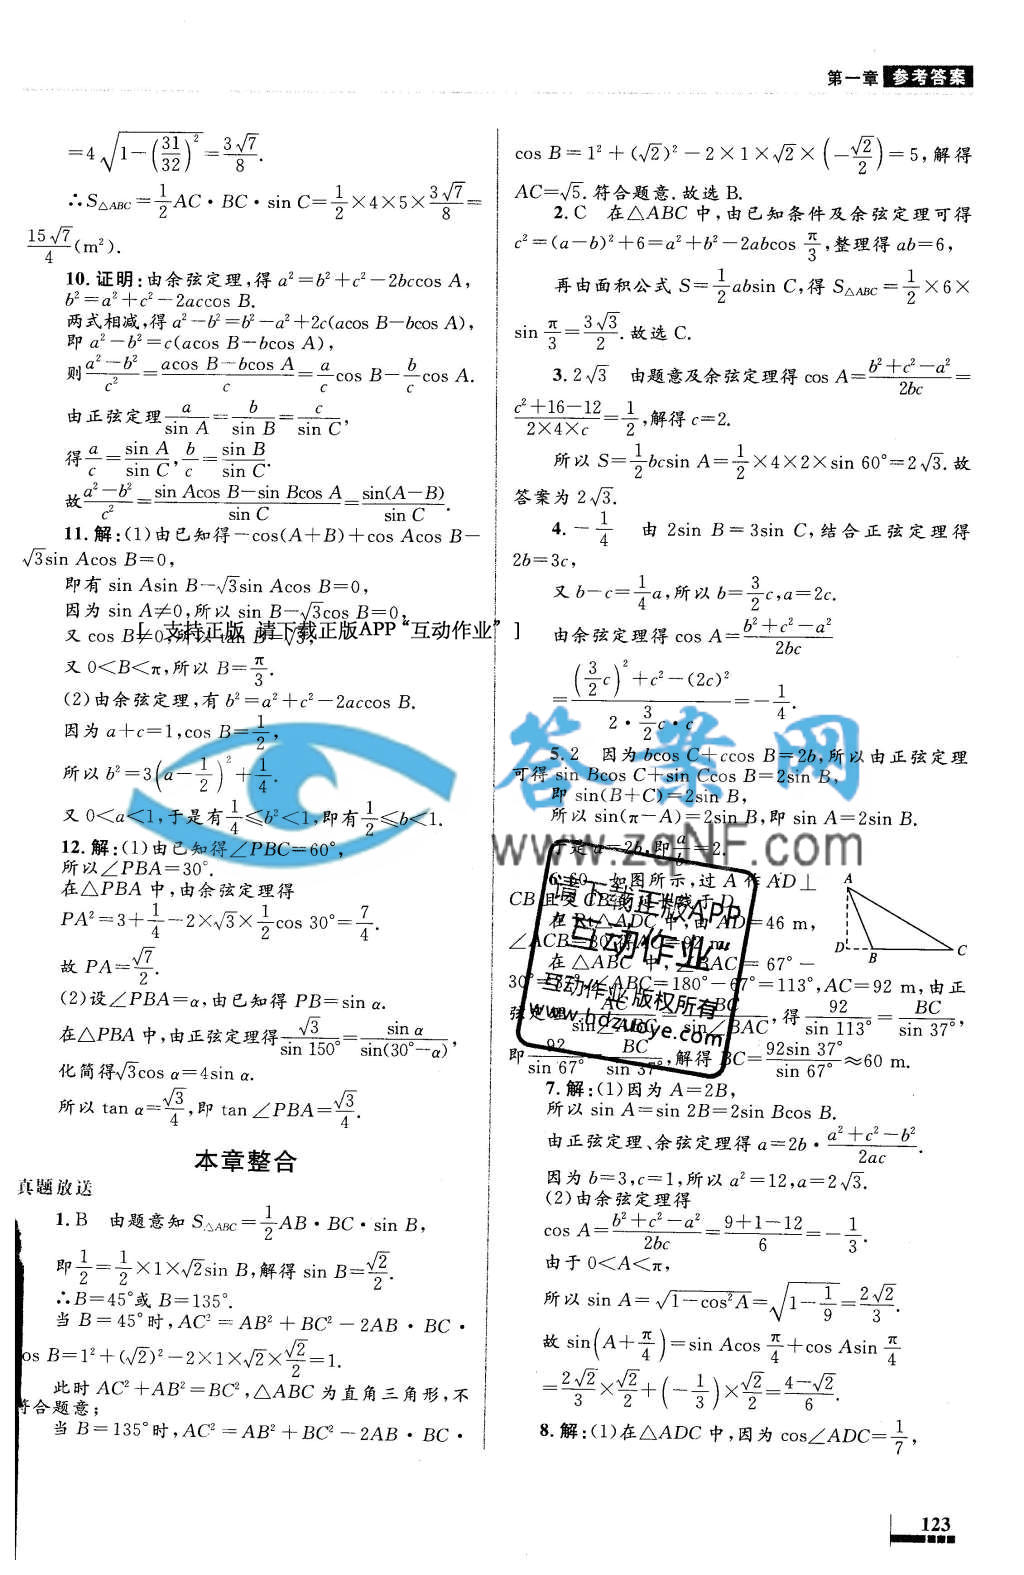 第一章 参考答案
=4√(1-(31/32)²)=3√7/8.
∴S△ABC=1/2AC·BC·sin C=1/2×4×5×3√7/8=
15√7/4(m²).
10.证明:由余弦定理,得 a²=b²+c²-2bccos A,
b²=a²+c²-2accos B.
两式相减,得 a²-b²=b²-a²+2c(acos B-bcos A),
即 a²-b²=c(acos B-bcos A),
则(a²-b²)/c²=(acos B-bcos A)/c=a/c cos B-b/c cos A.
由正弦定理 a/sin A=b/sin B=c/sin C,
得 a/c=sin A/sin C,b/c=sin B/sin C.
故(a²-b²)/c²=(sin Acos B-sin Bcos A)/sin C=sin(A-B)/sin C.
11.解:(1)由已知得-cos(A+B)+cos Acos B-
√3sin Acos B=0,
即有 sin Asin B-√3sin Acos B=0,
因为 sin A≠0,所以 sin B-√3cos B=0,
又 cos B≠0,所以 tan B=√3,
[ 支持正版 请下载正版APP“互动作业” ]
又 0<B<π,所以 B=π/3.
(2)由余弦定理,有 b²=a²+c²-2accos B.
因为 a+c=1,cos B=1/2,
所以 b²=3(a-1/2)²+1/4.
又 0<a<1,于是有1/4≤b²<1,即有1/2≤b<1.
12.解:(1)由已知得∠PBC=60°,
所以∠PBA=30°.
在△PBA 中,由余弦定理得
PA²=3+1/4-2×√3×1/2cos 30°=7/4.
故 PA=√7/2.
(2)设∠PBA=α,由已知得 PB=sin α.
在△PBA 中,由正弦定理得√3/sin 150°=sin α/sin(30°-α),
化简得√3cos α=4sin α.
所以 tan α=√3/4,即 tan∠PBA=√3/4.
本章整合
真题放送
1.B 由题意知 S△ABC=1/2AB·BC·sin B,
即1/2=1/2×1×√2sin B,解得 sin B=√2/2.
∴B=45°或 B=135°.
当 B=45°时,AC²=AB²+BC²-2AB·BC·
os B=1²+(√2)²-2×1×√2×√2/2=1.
此时 AC²+AB²=BC²,△ABC 为直角三角形,不
符合题意;
当 B=135°时,AC²=AB²+BC²-2AB·BC·
cos B=1²+(√2)²-2×1×√2×(-√2/2)=5,解得
AC=√5.符合题意.故选 B.
2.C 在△ABC 中,由已知条件及余弦定理可得
c²=(a-b)²+6=a²+b²-2abcos π/3,整理得 ab=6,
再由面积公式 S=1/2absin C,得 S△ABC=1/2×6×
sin π/3=3√3/2.故选 C.
3.2√3 由题意及余弦定理得 cos A=(b²+c²-a²)/2bc=
(c²+16-12)/(2×4×c)=1/2,解得 c=2.
所以 S=1/2bcsin A=1/2×4×2×sin 60°=2√3.故
答案为 2√3.
4.-1/4 由 2sin B=3sin C,结合正弦定理得
2b=3c,
又 b-c=1/4a,所以 b=3/2c,a=2c.
由余弦定理得 cos A=(b²+c²-a²)/2bc
=((3/2c)²+c²-(2c)²)/(2·3/2c·c)=-1/4.
5.2 因为 bcos C+ccos B=2b,所以由正弦定理
可得 sin Bcos C+sin Ccos B=2sin B,
即 sin(B+C)=2sin B,
所以 sin(π-A)=2sin B,即 sin A=2sin B.
于是 a=2b,即a/b=2.
6.60 如图所示,过 A 作 AD⊥
CB 且交 CB 的延长线于 D.
在 Rt△ADC 中,由 AD=46 m,
∠ACB=30°得 AC=92 m.
在△ABC 中,∠BAC=67°-
30°=37°,∠ABC=180°-67°=113°,AC=92 m,由正
弦定理 AC/sin∠ABC=BC/sin∠BAC,得 92/sin 113°=BC/sin 37°,
即 92/sin 67°=BC/sin 37°,解得 BC=92sin 37°/sin 67°≈60 m.
A
D
B
C
7.解:(1)因为 A=2B,
所以 sin A=sin 2B=2sin Bcos B.
由正弦定理、余弦定理得 a=2b·(a²+c²-b²)/2ac.
因为 b=3,c=1,所以 a²=12,a=2√3.
(2)由余弦定理得
cos A=(b²+c²-a²)/2bc=(9+1-12)/6=-1/3.
由于 0<A<π,
所以 sin A=√(1-cos²A)=√(1-1/9)=2√2/3.
故 sin(A+π/4)=sin Acos π/4+cos Asin π/4
=2√2/3×√2/2+(-1/3)×√2/2=(4-√2)/6.
8.解:(1)在△ADC 中,因为 cos∠ADC=1/7,
答案网
www.zqNF.com
请下载正版APP
互动作业
互动作业 版权所有
www.hdzuoye.com
123